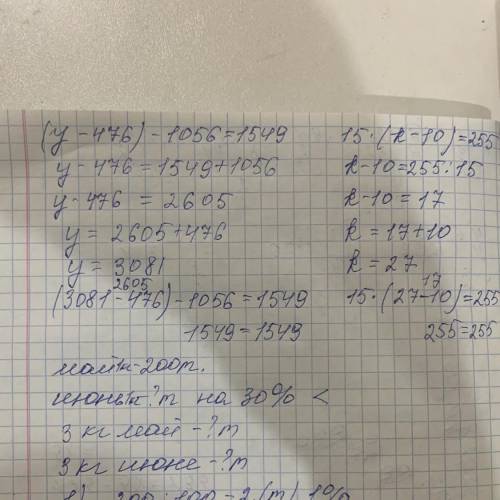 (y - 476) - 1056 = 1549
y - 476 = 1549 + 1056
y - 476 = 2605
y = 2605 + 476
y = 3081
2605
(3081 - 476) - 1056 = 1549
1549 = 1549
15 · (k - 10) = 255
k - 10 = 255 : 15
k - 10 = 17
k = 17 + 10
k = 27
17
15 · (27 - 10) = 255
255 = 255
май 1к - 200т.
июнь 1к - ?т на 30% <
3 кг май - ?т
3 кг июне - ?т
1) 200 : 100 = 2 (т) 1%